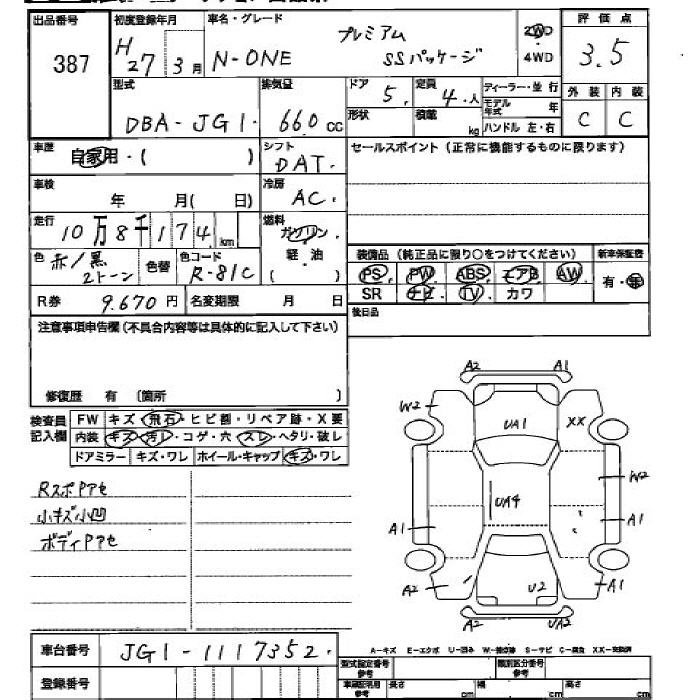 出品番号 初度登録年月 車名・グレード 評価点
387 H27 3月 N-ONE プレミアム SSパッケージ 2WD 4WD 3.5
型式 排気量 ドア 定員 ディーラー・並行 外装 内装
DBA-JG1. 660cc 5. 4.人 モデル年式 年 C C
形状 積載 kg ハンドル 左・右
車歴 自家用・( ) シフト DAT. セールスポイント(正常に機能するものに限ります)
車検 年 月( 日) 冷房 AC.
走行 10万8千174km 燃料 ガソリン・軽油 ( )
色 赤/黒 2トーン 色替 色コード R-81C
装備品(純正品に限り○をつけてください) 新車保証書
PS PW ABS エアB AW 有・無
SR ナビ TV カワ
R券 9.670円 名変期限 月 日 後日品
注意事項申告欄(不具合内容等は具体的に記入して下さい)
修復歴 有 (箇所 )
検査員記入欄 FW キズ・飛石・ヒビ割・リペア跡・X要
内装 キズ・汚レ・コゲ・穴・スレ・ヘタリ・破レ
ドアミラー キズ・ワレ ホイール・キャップ キズ・ワレ
RスポPアセ
小キズ小凹
ボディPアセ
A2 A1
W2 UA1 XX
UA4 W2
A1 A1
A2 U2 A1
A2 UA2
車台番号 JG1-1117352.
A-キズ E-エクボ U-凹み S-サビ XX-交換済
登録番号 型式指定番号 参考 類別区分番号 参考
参考 長さ cm 幅 cm 高さ cm